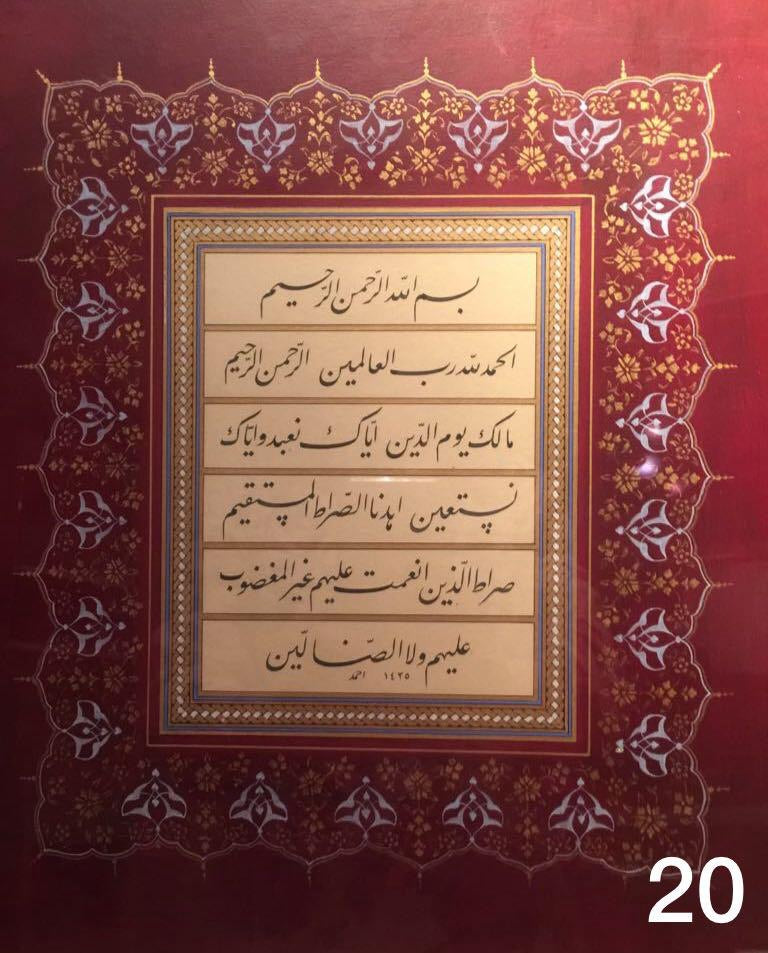 بسم الله الرّحمن الرّحيم
الحمد لله رب العالمين الرّحمن الرّحيم
مالك يوم الدّين ايّاك نعبد وايّاك
نستعين اهدنا الصّراط المستقيم
صراط الّذين انعمت عليهم غير المغضوب
عليهم ولا الضّالّين
احمد ١٤٢٥
20